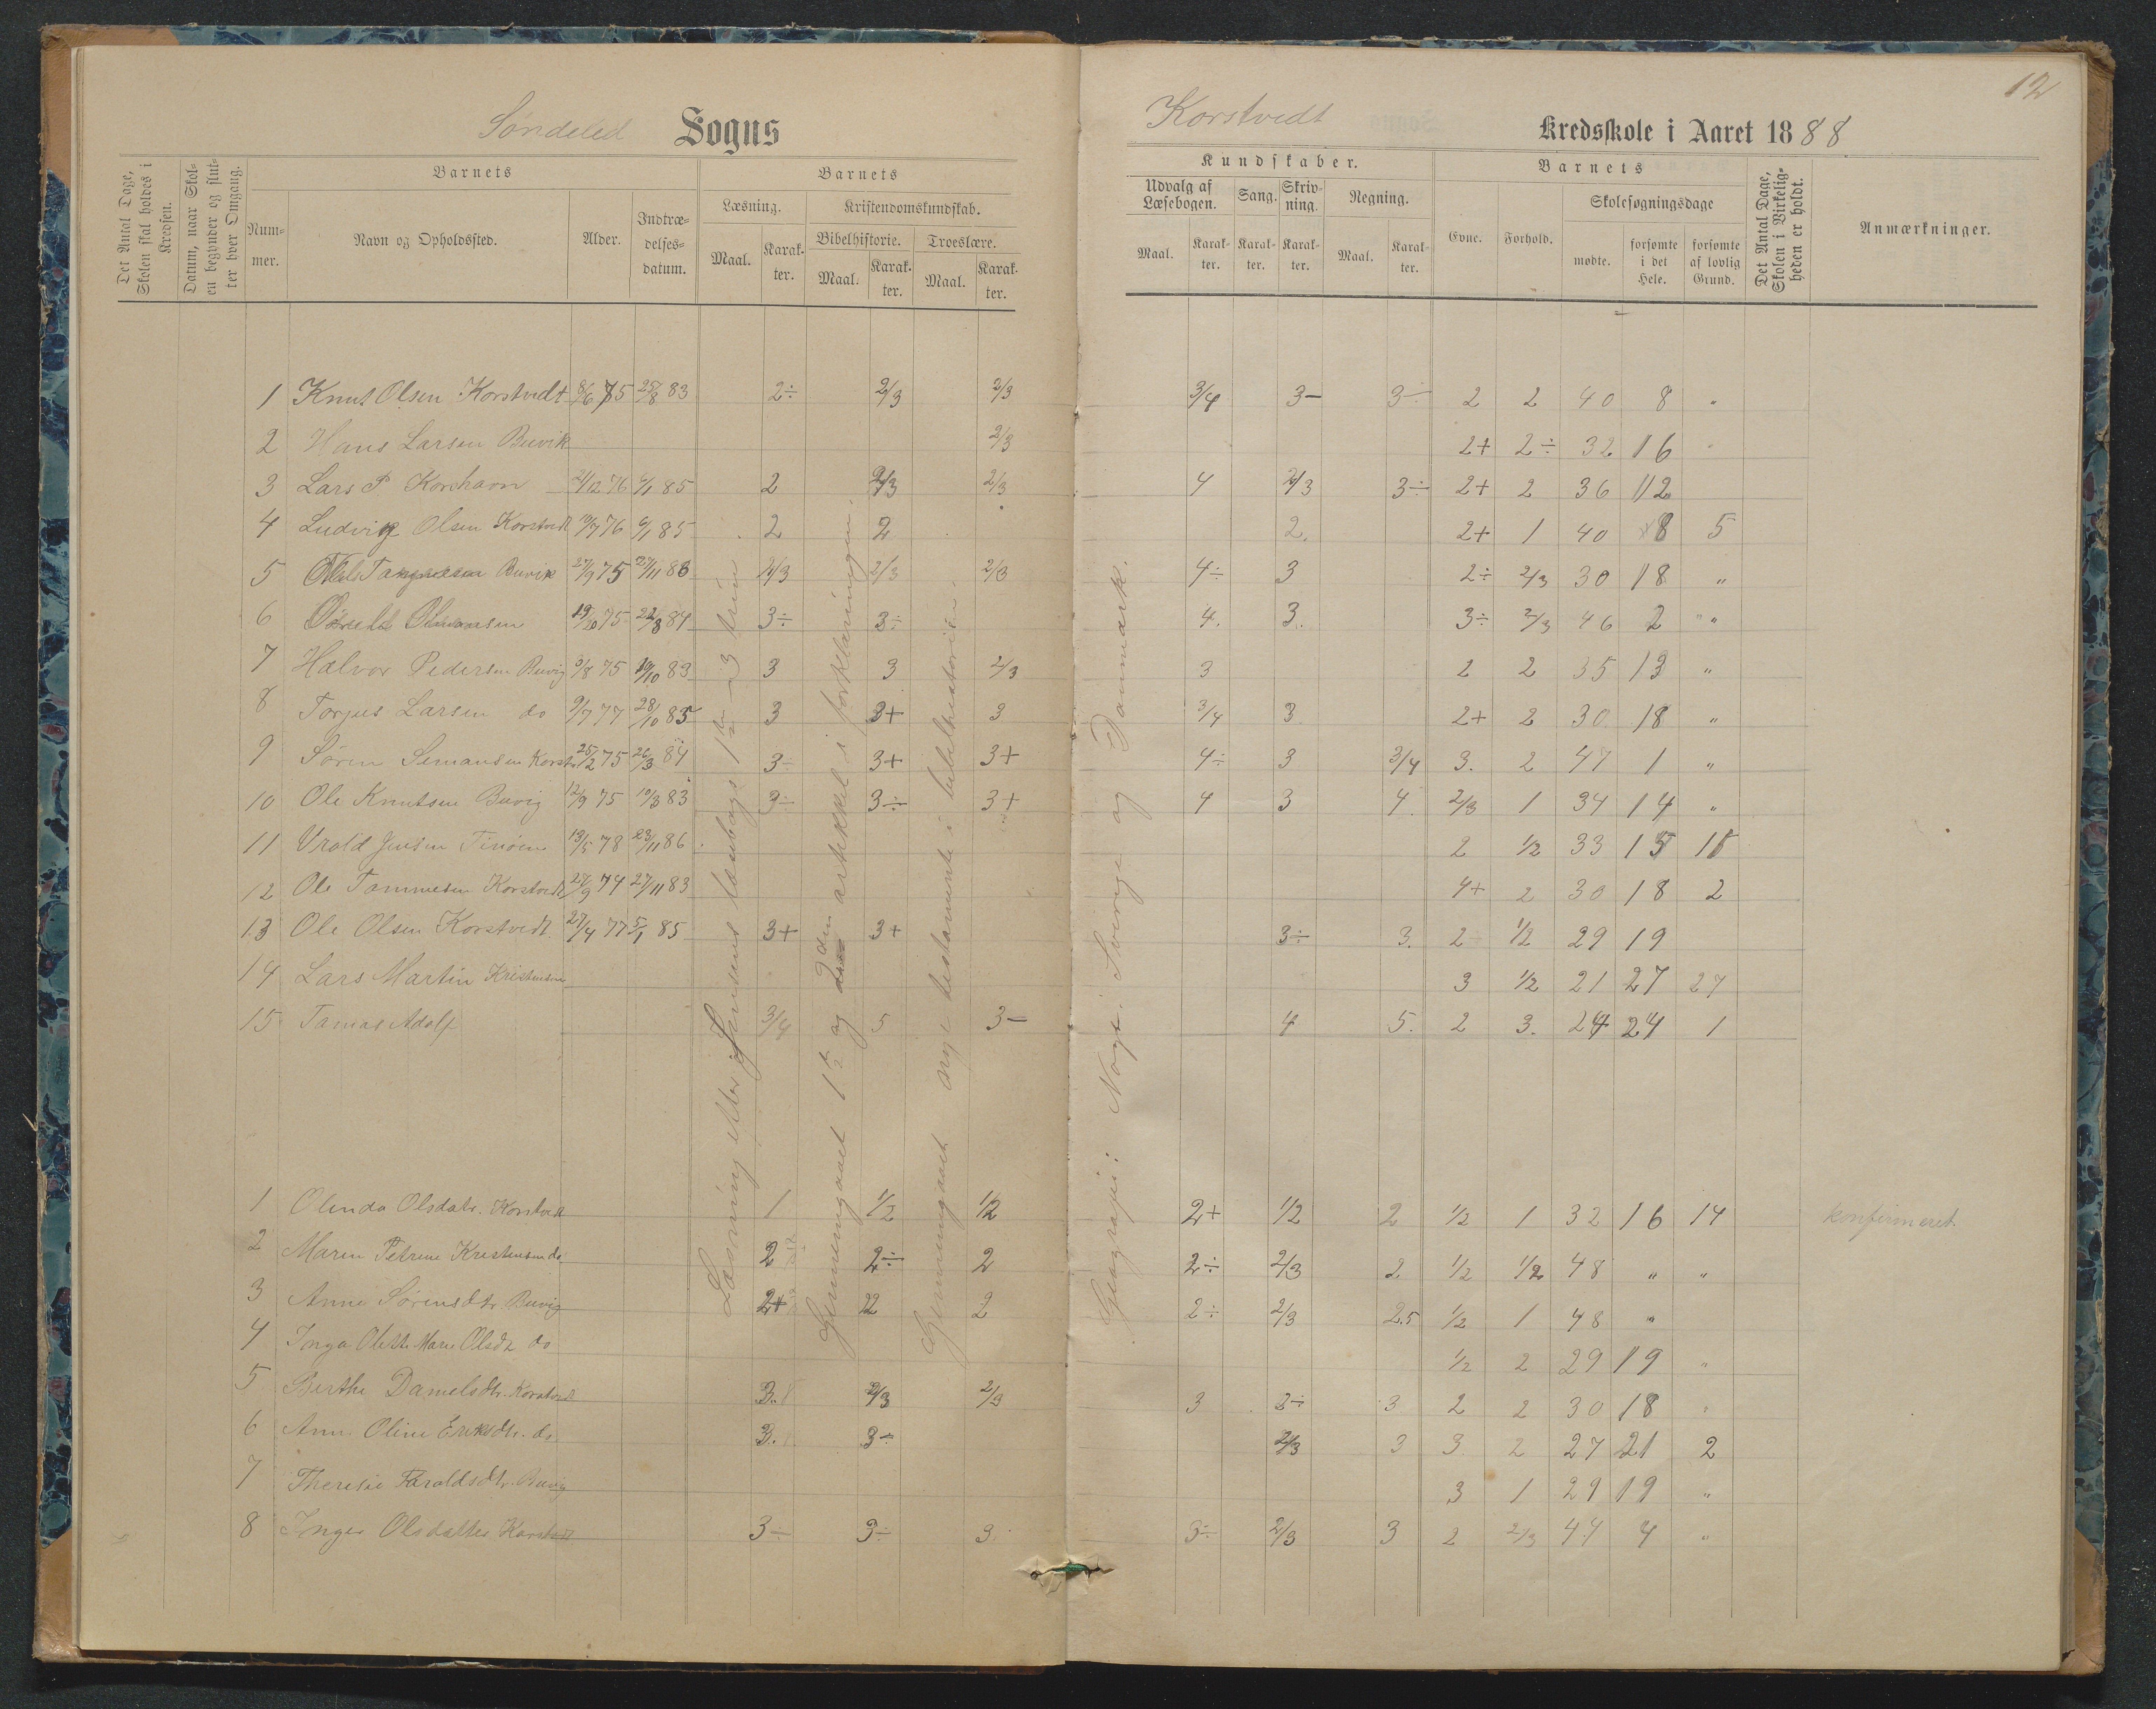 12
Søndeled Sogns
Korstvedt Kredsskole i Aaret 1888
Det Antal Dage, Skolen skal holdes i Kredsen.
Datum, naar Skolen begynder og slutter hver Omgang.
Barnets
Nummer.
Navn og Opholdssted.
Alder.
Indtrædelsesdatum.
Barnets
Læsning.
Maal.
Karakter.
Kristendomskundskab.
Bibelhistorie.
Maal.
Karakter.
Troeslære.
Maal.
Karakter.
Kundskaber.
Udvalg af Læsebogen.
Maal.
Karakter.
Sang.
Karakter.
Skrivning.
Karakter.
Regning.
Maal.
Karakter.
Barnets
Evne.
Forhold.
Skolesøgningsdage
mødte.
forsømte i det Hele.
forsømte af lovlig Grund.
Det Antal Dage, Skolen i Virkeligheden er holdt.
Anmærkninger.
1 Knut Olsen Korstvedt 8/6 75 25/8 83 2÷ 2/3 2/3 3/4 3- 3÷ 2 2 40 8 "
2 Hans Larsen Buvik 2/3 2+ 2÷ 32 16 "
3 Lars P 21/12 76 6/1 85 2 2/3 2/3 4 2/3 3÷ 2+ 2 36 12
4 Ludvig Olsen Korstvedt 10/7 76 6/1 85 2 2 2. 2+ 1 40 8 5
5 Buvik 27/9 75 27/11 83 2/3 2/3 2/3 4÷ 3 2÷ 2/3 30 18 "
6 75 84 3÷ 3÷ 4. 3. 3÷ 2/3 46 2 "
7 Halvor Pedersen Buvig 3/8 75 19/10 83 3 3 2/3 3 2 2 35 13 "
8 Torjus Larsen do 9/7 77 28/10 85 3 3+ 3 3/4 3 2+ 2 30 18 "
9 Søren Semansen Korstv 25/2 75 26/3 84 3÷ 3+ 3+ 4÷ 3 3/4 3. 2 47 1 "
10 Ole Knutsen Buvig 12/9 75 19/3 83 3÷ 3÷ 3+ 4 3 4. 2/3 1 34 14 "
11 Vrold Jensen 13/5 78 23/11 86 2 1/2 33 15 15
12 Ole Tommesen Korstvedt 27/9 74 27/11 83 4+ 2 30 18 2
13 Ole Olsen Korstvedt 27/4 77 5/1 85 3+ 3+ 3÷ 3. 2 1/2 29 19
14 Lars Martin Kristensen 3 1/2 21 27 27
15 Tomas Adolf 3/4 5 3- 4 5. 2 3. 24 24 1
1 Olinda Olsdatr. Korstvedt 1 1/2 1/2 2+ 1/2 2 1/2 1 32 16 14 konfirmeret.
2 Maren Petrine Kristensen do. 2 2÷ 2 2÷ 2/3 2. 1/2 1/2 48 " "
3 Anne Sørensdtr. Buvig 2+ 2 2 2÷ 2/3 2.5 1/2 1 48 "
4 Inga Olette Marie Olsdt do 1/2 2 29 19 "
5 Berthe Danielsdtr. Korstvedt 3. 2/3 2/3 3 3÷ 3 2 2 30 18 "
6 Anne Oline Eriksdtr. do. 3. 3÷ 2/3 3 3. 2 27 21 2
7 Theresie Haraldsdtr. Buvig 3 1 29 19 "
8 Inger Olsdatter Korstvedt 3÷ 3÷ 3. 3÷ 2/3 3 2 2/3 44 4 "
Læsning efter Jensens læsebogs 1ste – 3 trin
Gjennemgaaet 1ste og 2den artikkel i forklaringen.
Gjennemgaaet nye testamente i bibelhistorien
Geografi: Norge, Sverige og Danmark.